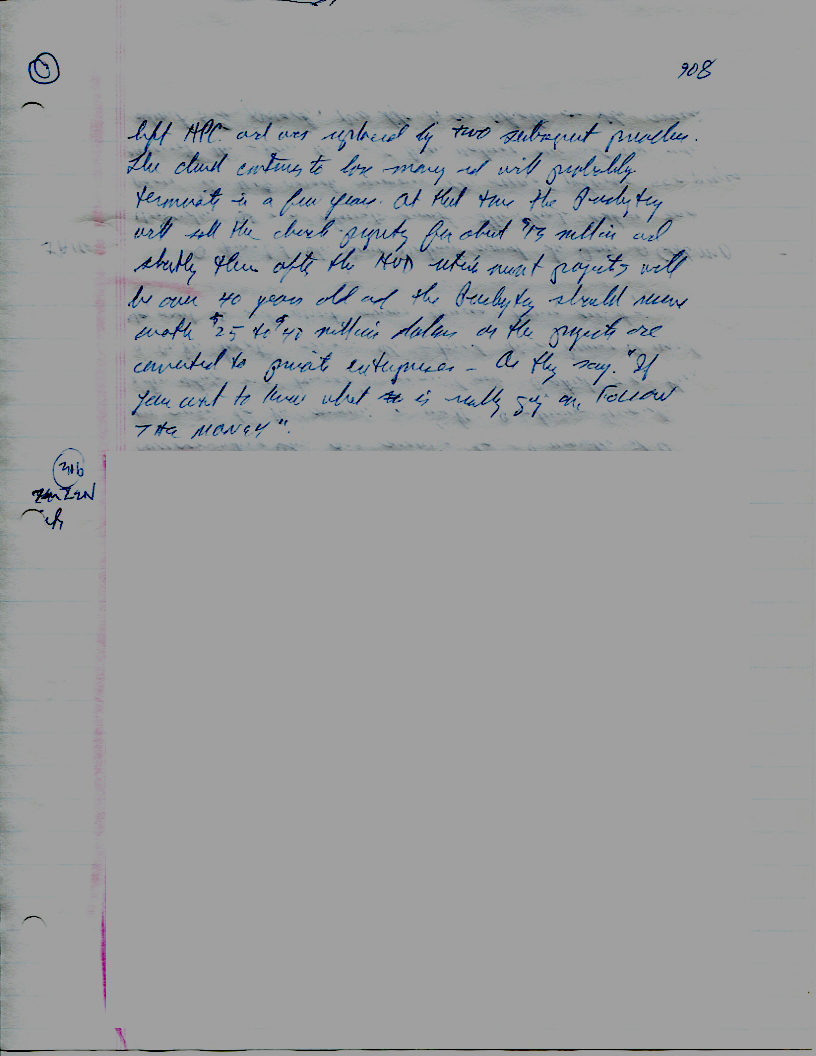 908
left APC and was replaced by two subsequent preachers.
The church continues to lose money and will probably
terminate in a few years. At that time the Presbytery
will sell the church property for about $13 million and
shortly there after the HUD retirement projects will
be over 40 years old and the Presbytery should receive
another $25 to $40 million dollars as the projects are
converted to private enterprises - As they say. "If
you want to know what is really going on, FOLLOW
THE MONEY".
316